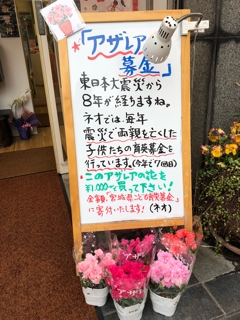 「アザレア
募金」
東日本大震災から
8年が経りますね。
ネオでは、毎年
震災で両親を亡くした
子供たちの育英募金を
行っています。(今年で7回目)
このアザレアの花を
¥1,000-で買って下さい!
全額、宮城県こども育英募金
に寄付いたします!(ネオ)